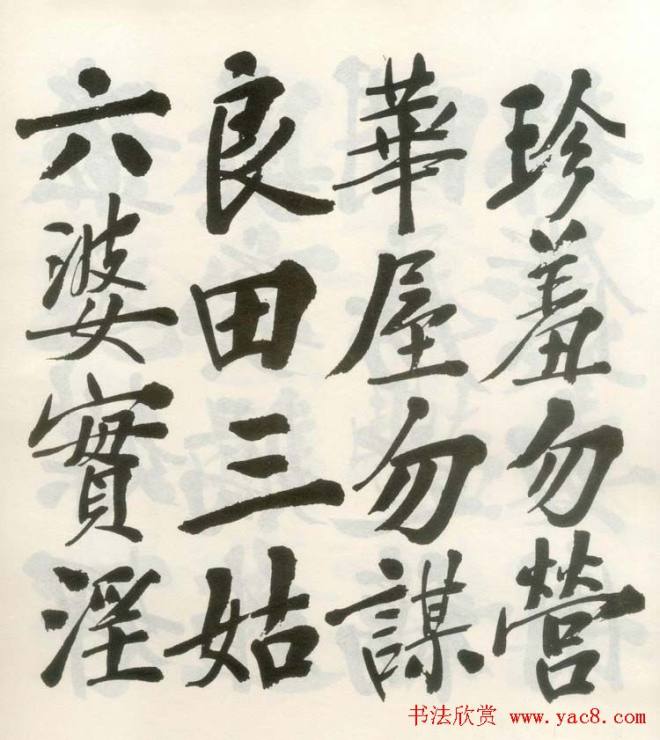 珍羞勿營
華屋勿謀
良田三姑
六婆實淫
书法欣赏 www.yac8.com